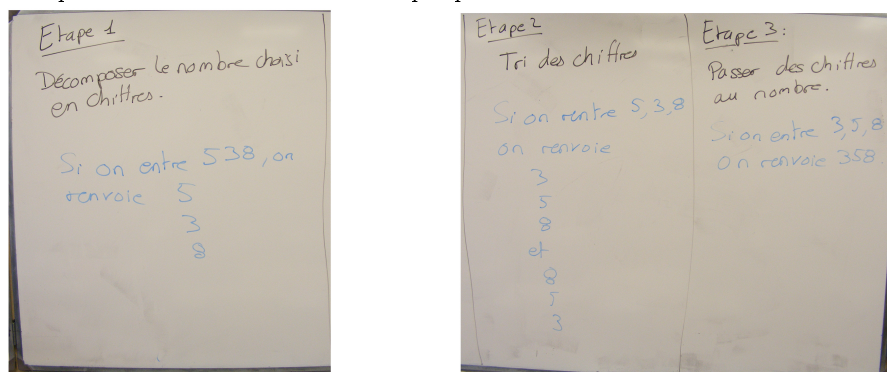 Etape 1
Décomposer le nombre choisi
en chiffres.
Si on entre 538, on
renvoie 5
3
8
Etape 2
Tri des chiffres
Si on rentre 5, 3, 8
on renvoie
3
5
8
et
8
5
3
Etape 3:
Passer des chiffres
au nombre.
Si on entre 3, 5, 8
On renvoie 358